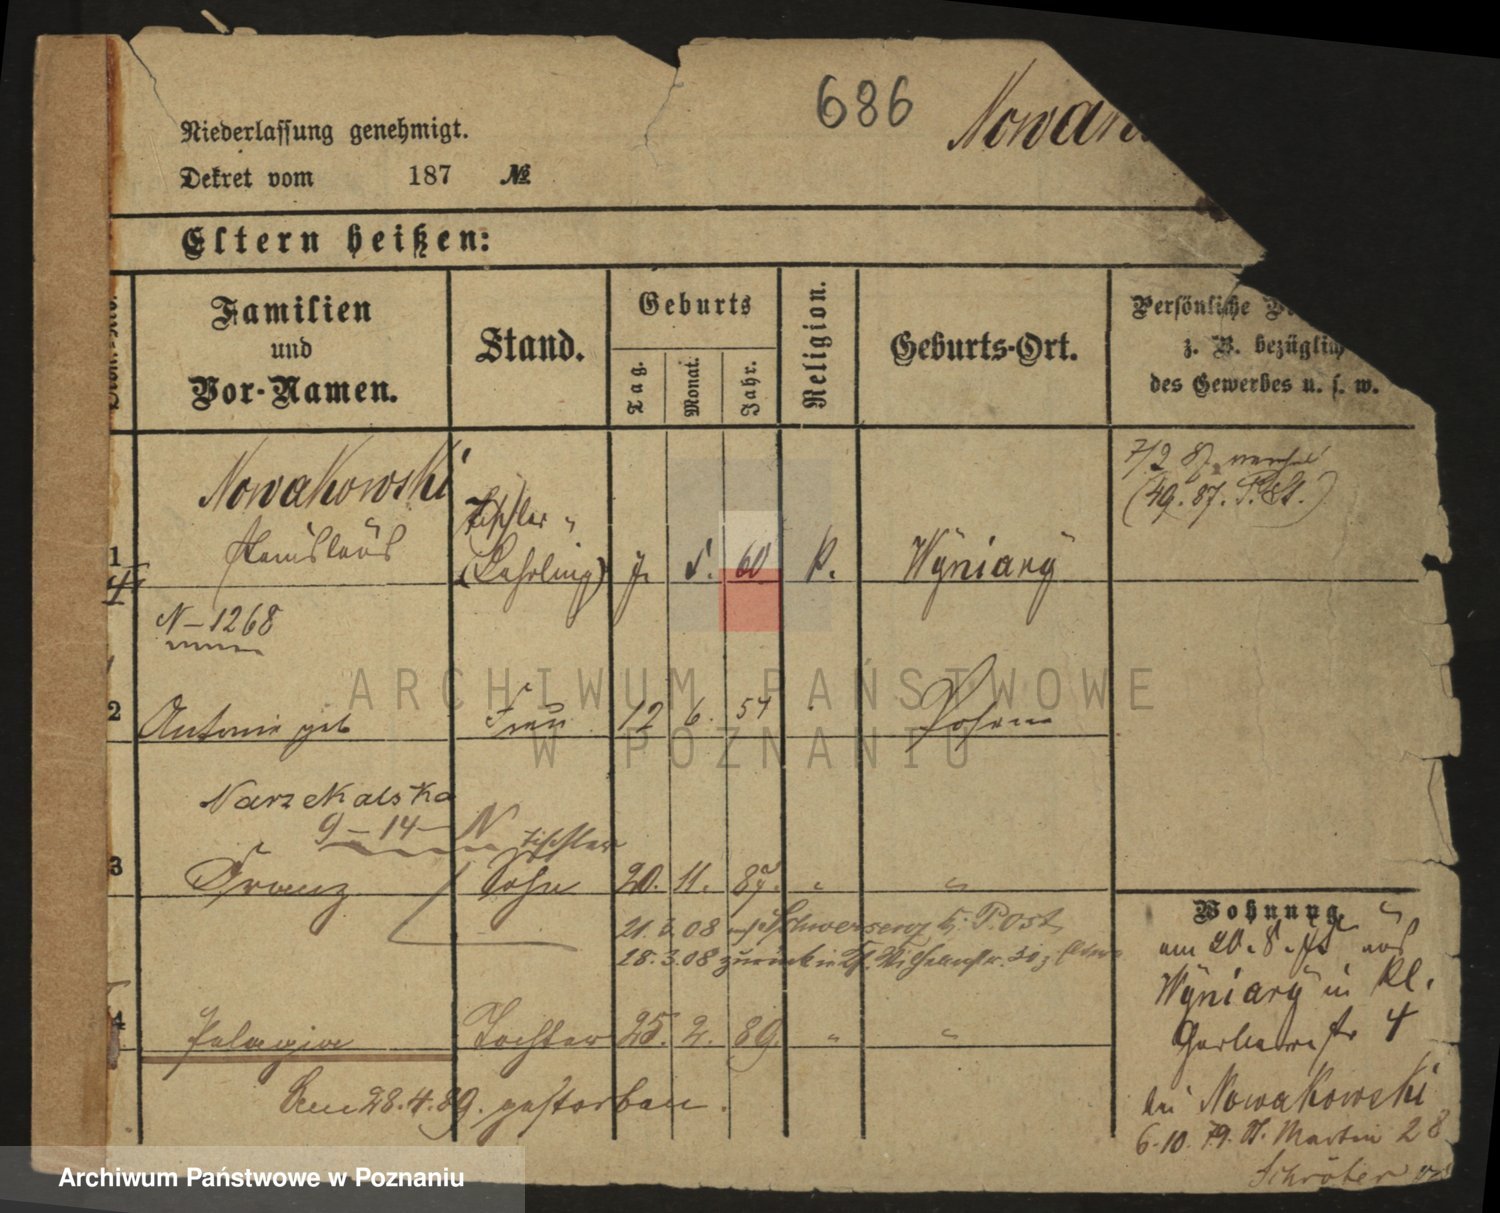 686
Nowak
Niederlassung genehmigt.
Dekret vom 187 №
Eltern heißen:
Familien und Vor-Namen.
Stand.
Geburts
Tag.
Monat.
Jahr.
Religion.
Geburts-Ort.
Persönliche
z. B. bezüglich
des Gewerbes u. s. w.
7/2 87
(49. 87. P. St.)
Nowakowski
Stanislaus
Tischler
1 (Lehrling) 7. 5. 60 K. Wyniary
N-1268
2 Antonie geb Frau 12 6. 57 Posen
Narzekalska
9-14- N Tischler
3 Franz Sohn 20. 11. 87. " "
21. 3. 08 Schwersenz b. Post
28. 3. 08 zurück
4 Pelagia Tochter 25. 2. 89. " "
Am 28.4.89. gestorben.
Wohnung
am 20. 8. 75 aus
Wyniary in Kl.
Gerberstr 4
bei Nowakowski
6.10.79. St. Martin 28
Schröter
ARCHIWUM PAŃSTWOWE
W POZNANIU
Archiwum Państwowe w Poznaniu